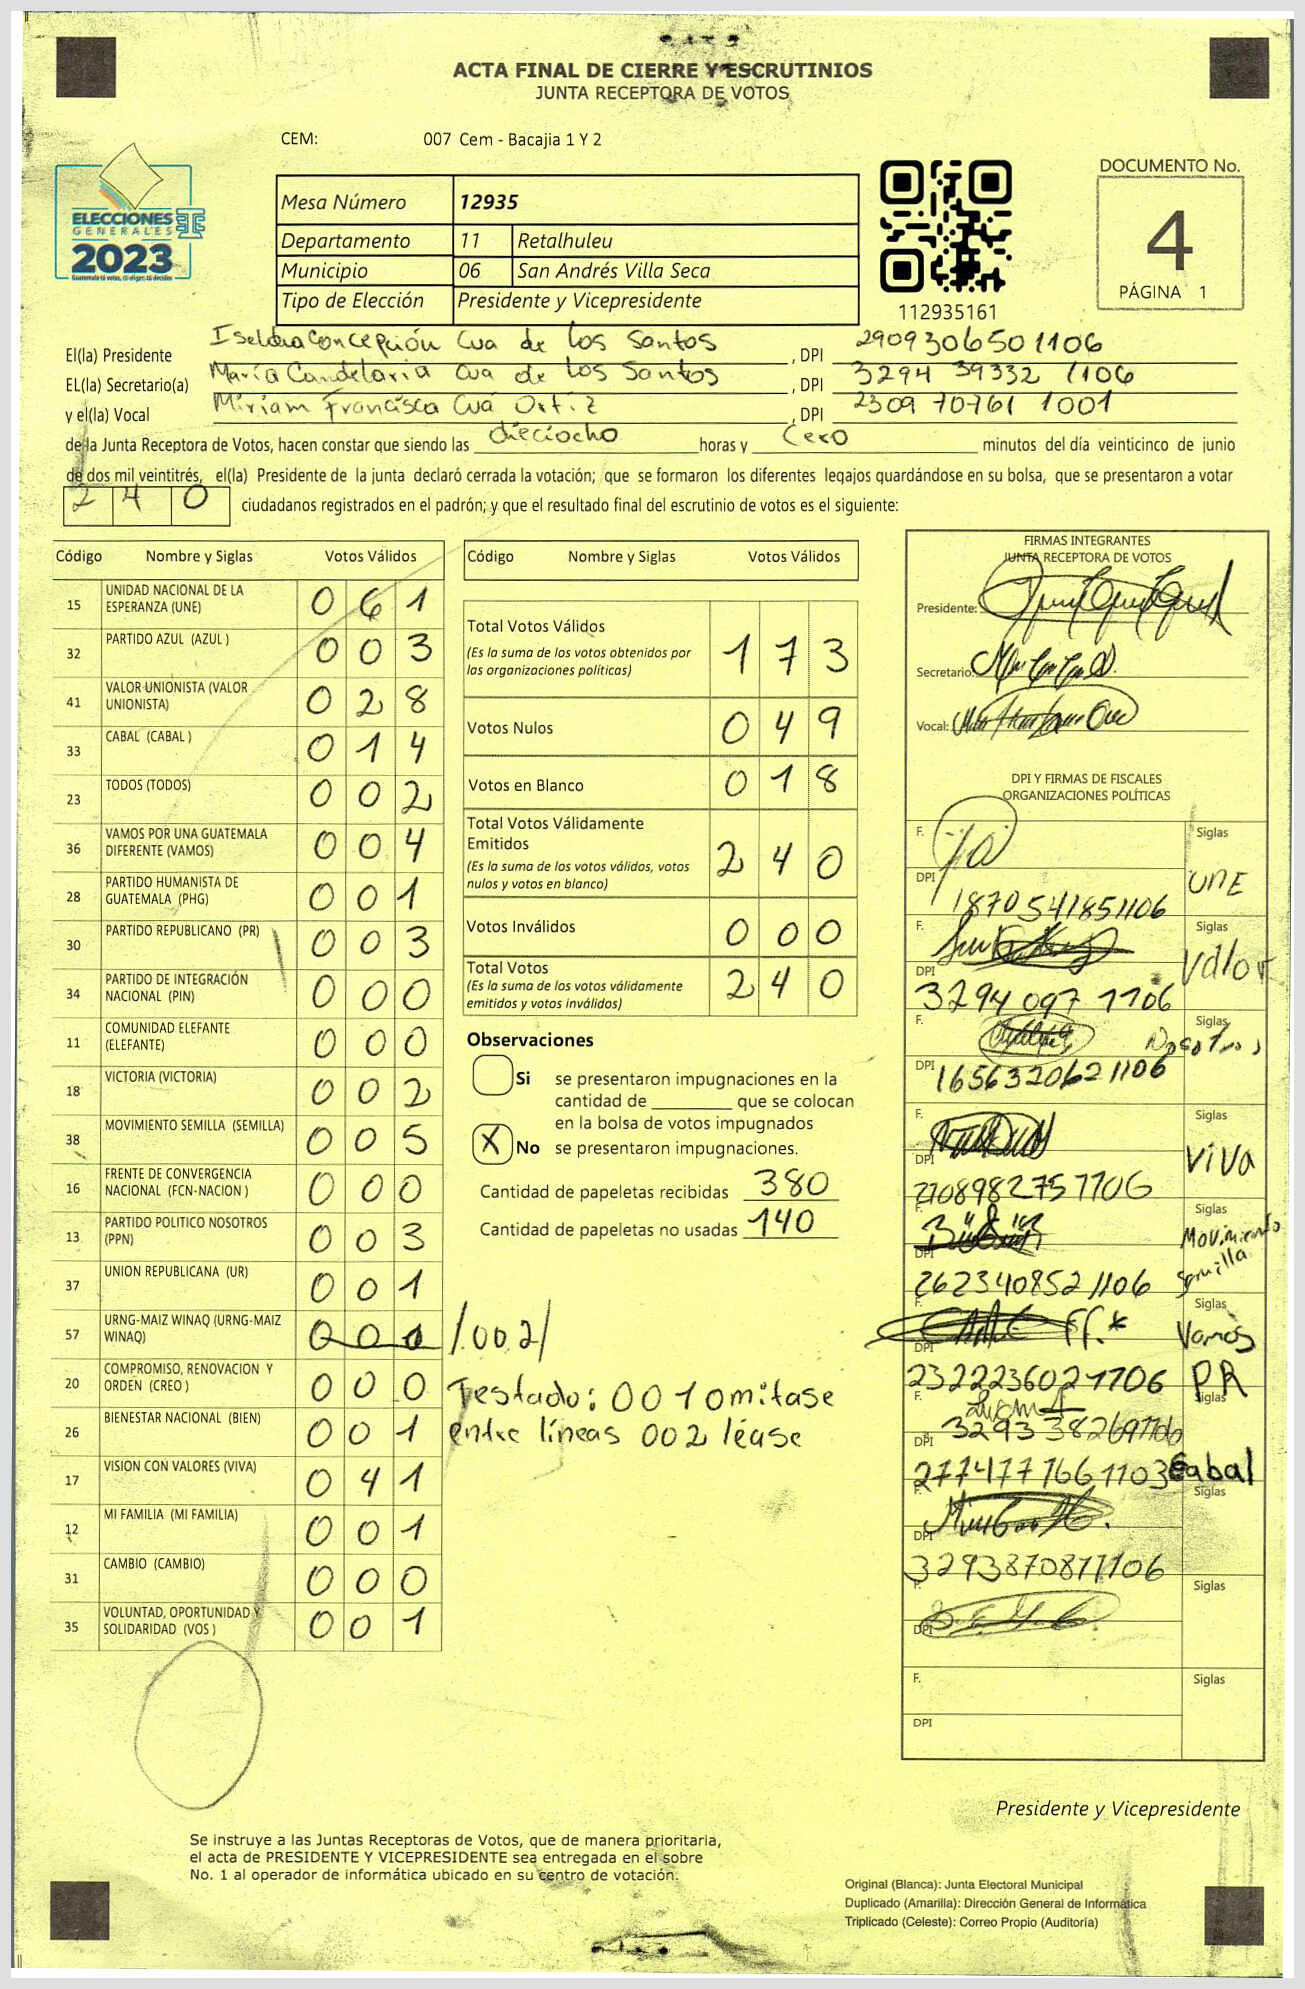 ACTA FINAL DE CIERRE Y ESCRUTINIOS
JUNTA RECEPTORA DE VOTOS
CEM: 007 Cem - Bacajia 1 Y 2
ELECCIONES
GENERALES
2023
Mesa Número 12935
Departamento 11 Retalhuleu
Municipio 06 San Andrés Villa Seca
Tipo de Elección Presidente y Vicepresidente
112935161
DOCUMENTO No.
4
PÁGINA 1
El(la) Presidente Iseldra Concepción Cua de Los Santos, DPI 2909306501106
EL(la) Secretario(a) María Candelaria Cua de Los Santos, DPI 3294 39332 1106
y el(la) Vocal Miriam Francisca Cuá Ortiz, DPI 2309 70761 1001
de la Junta Receptora de Votos, hacen constar que siendo las dieciocho horas y Cero minutos del día veinticinco de junio
de dos mil veintitrés, el(la) Presidente de la junta declaró cerrada la votación; que se formaron los diferentes legajos guardándose en su bolsa, que se presentaron a votar
240 ciudadanos registrados en el padrón; y que el resultado final del escrutinio de votos es el siguiente:
Código Nombre y Siglas Votos Válidos
15 UNIDAD NACIONAL DE LA ESPERANZA (UNE) 061
32 PARTIDO AZUL (AZUL ) 003
41 VALOR UNIONISTA (VALOR UNIONISTA) 028
33 CABAL (CABAL ) 014
23 TODOS (TODOS) 002
36 VAMOS POR UNA GUATEMALA DIFERENTE (VAMOS) 004
28 PARTIDO HUMANISTA DE GUATEMALA (PHG) 001
30 PARTIDO REPUBLICANO (PR) 003
34 PARTIDO DE INTEGRACIÓN NACIONAL (PIN) 000
11 COMUNIDAD ELEFANTE (ELEFANTE) 000
18 VICTORIA (VICTORIA) 002
38 MOVIMIENTO SEMILLA (SEMILLA) 005
16 FRENTE DE CONVERGENCIA NACIONAL (FCN-NACION ) 000
13 PARTIDO POLITICO NOSOTROS (PPN) 003
37 UNION REPUBLICANA (UR) 001
57 URNG-MAIZ WINAQ (URNG-MAIZ WINAQ) 001 /002/
20 COMPROMISO, RENOVACION Y ORDEN (CREO ) 000
26 BIENESTAR NACIONAL (BIEN) 001
17 VISION CON VALORES (VIVA) 041
12 MI FAMILIA (MI FAMILIA) 001
31 CAMBIO (CAMBIO) 000
35 VOLUNTAD, OPORTUNIDAD Y SOLIDARIDAD (VOS ) 001
Código Nombre y Siglas Votos Válidos
Total Votos Válidos 173
(Es la suma de los votos obtenidos por
las organizaciones políticas)
Votos Nulos 049
Votos en Blanco 018
Total Votos Válidamente
Emitidos 240
(Es la suma de los votos válidos, votos
nulos y votos en blanco)
Votos Inválidos 000
Total Votos 240
(Es la suma de los votos válidamente
emitidos y votos inválidos)
Observaciones
Si se presentaron impugnaciones en la
cantidad de ________ que se colocan
en la bolsa de votos impugnados
X No se presentaron impugnaciones.
Cantidad de papeletas recibidas 380
Cantidad de papeletas no usadas 140
Testado: 001 omitase
entre líneas 002 léase
FIRMAS INTEGRANTES
JUNTA RECEPTORA DE VOTOS
Presidente:
Secretario:
Vocal:
DPI Y FIRMAS DE FISCALES
ORGANIZACIONES POLÍTICAS
F. Siglas
DPI 1870541851106 UNE
F. Siglas
DPI 3294 097 1106 Valor
F. Siglas
DPI 1656320621106 Nosotros
F. Siglas
DPI 2708982757106 ViVa
F. Siglas
DPI 2623408521106 Movimiento Semilla
F. Siglas
DPI 2322236021706 Vamos
PR
F. Siglas
DPI 3293 382691106
2774777661103 Cabal
F. Siglas
DPI 3293870871106
F. Siglas
DPI
F. Siglas
DPI
Presidente y Vicepresidente
Se instruye a las Juntas Receptoras de Votos, que de manera prioritaria,
el acta de PRESIDENTE Y VICEPRESIDENTE sea entregada en el sobre
No. 1 al operador de informática ubicado en su centro de votación.
Original (Blanca): Junta Electoral Municipal
Duplicado (Amarilla): Dirección General de Informática
Triplicado (Celeste): Correo Propio (Auditoría)